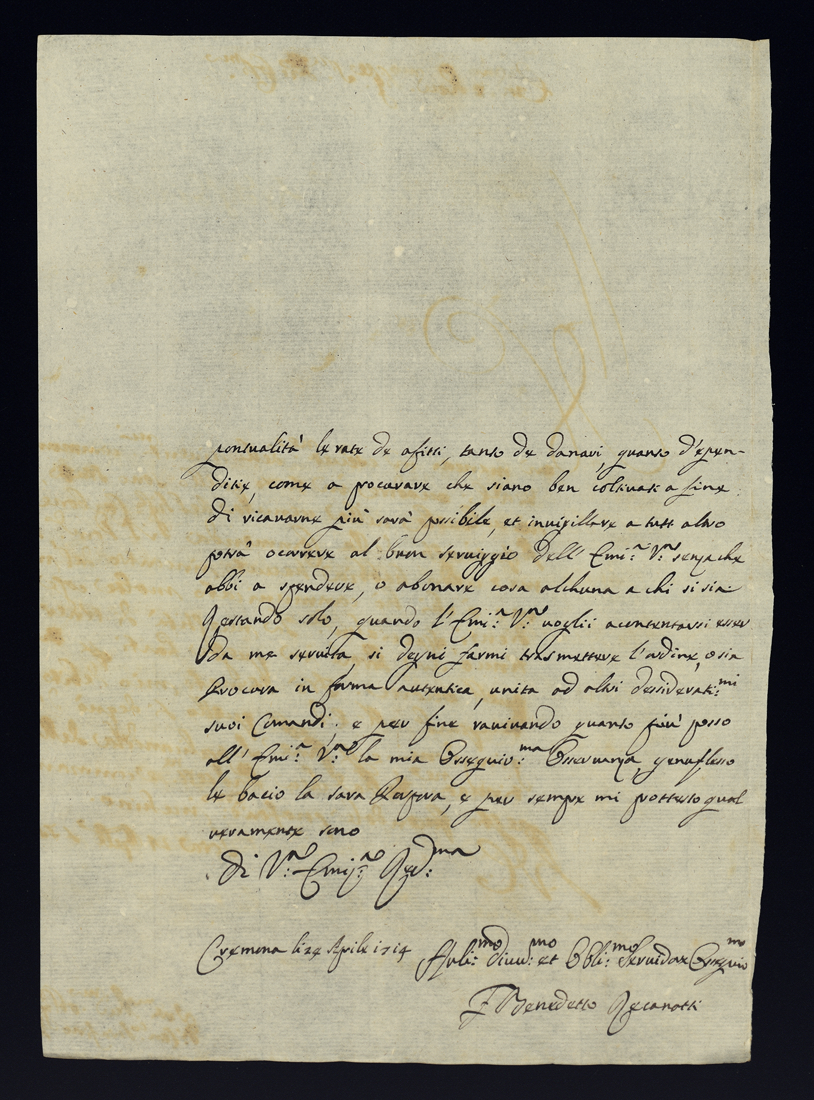 pontualità le rate de afitti, tanto de danari, quanto d'epen-
ditie, come a procurare che siano ben coltivati a fine
di ricavarne più sarà possibile, et invigillare a tutt altro
potrà ocorrere al buon serviggio dell' Emi:ª V:ra senza che
abbi a spendere, o abonare cosa alchuna a chi si sia
Restando solo, quando l' Emi:ª V:ra voglii acontentarsi esser
da me servita, si degni farmi trasmettere l'ordine, o sia
Procura in forma autentica, unita ad altri dessiderati:mi
suoi Comandi; e per fine ravivando quanto più posso
all' Emi:ª V:ra la mia Ossequio:ma Osservanza, genuflesso
le bacio la sara Porpora, e per sempre mi protesto qual
veramente sono
Di V:ra Emi:za Rev:ma
Cremona li 24 Aprile 1714
Humili:mo Divo:mo et Obbli:mo Servidore Ossequio:mo
F Benedetto Recanatti